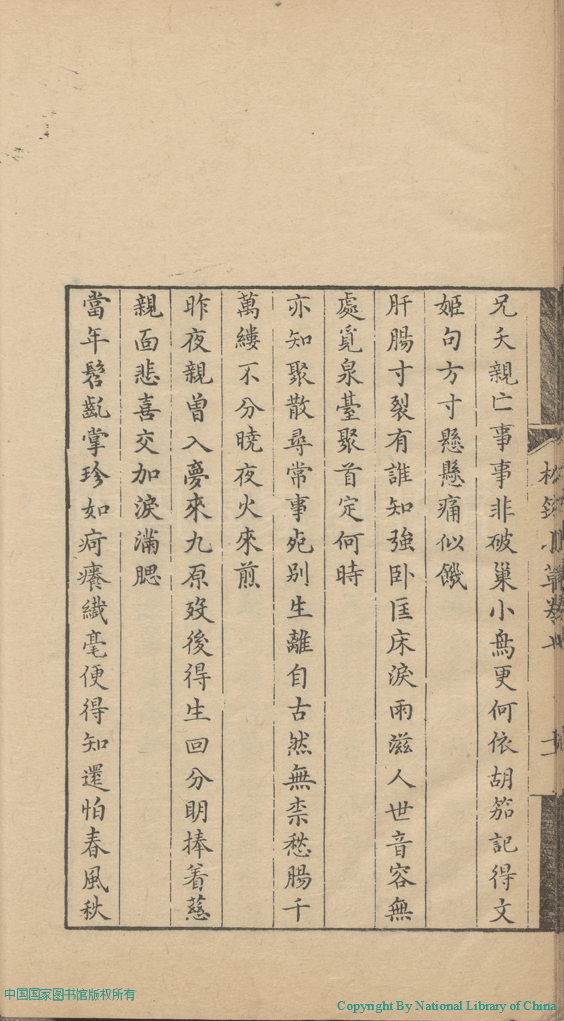 兄夭親亡事事非破巢小鳥更何依胡笳記得文
姬句方寸懸懸痛似饑
肝腸寸裂有誰知強卧匡床淚雨滋人世音容無
處覓泉臺聚首定何時
亦知聚散尋常事死別生離自古然無柰愁腸千
萬縷不分曉夜火來煎
昨夜親曾入夢來九原歿後得生回分明捧着慈
親面悲喜交加淚滿腮
當年髫齓掌珍如疴癢纎毫便得知還怕春風秋
中国国家图书馆版权所有
Copyright By National Library of China